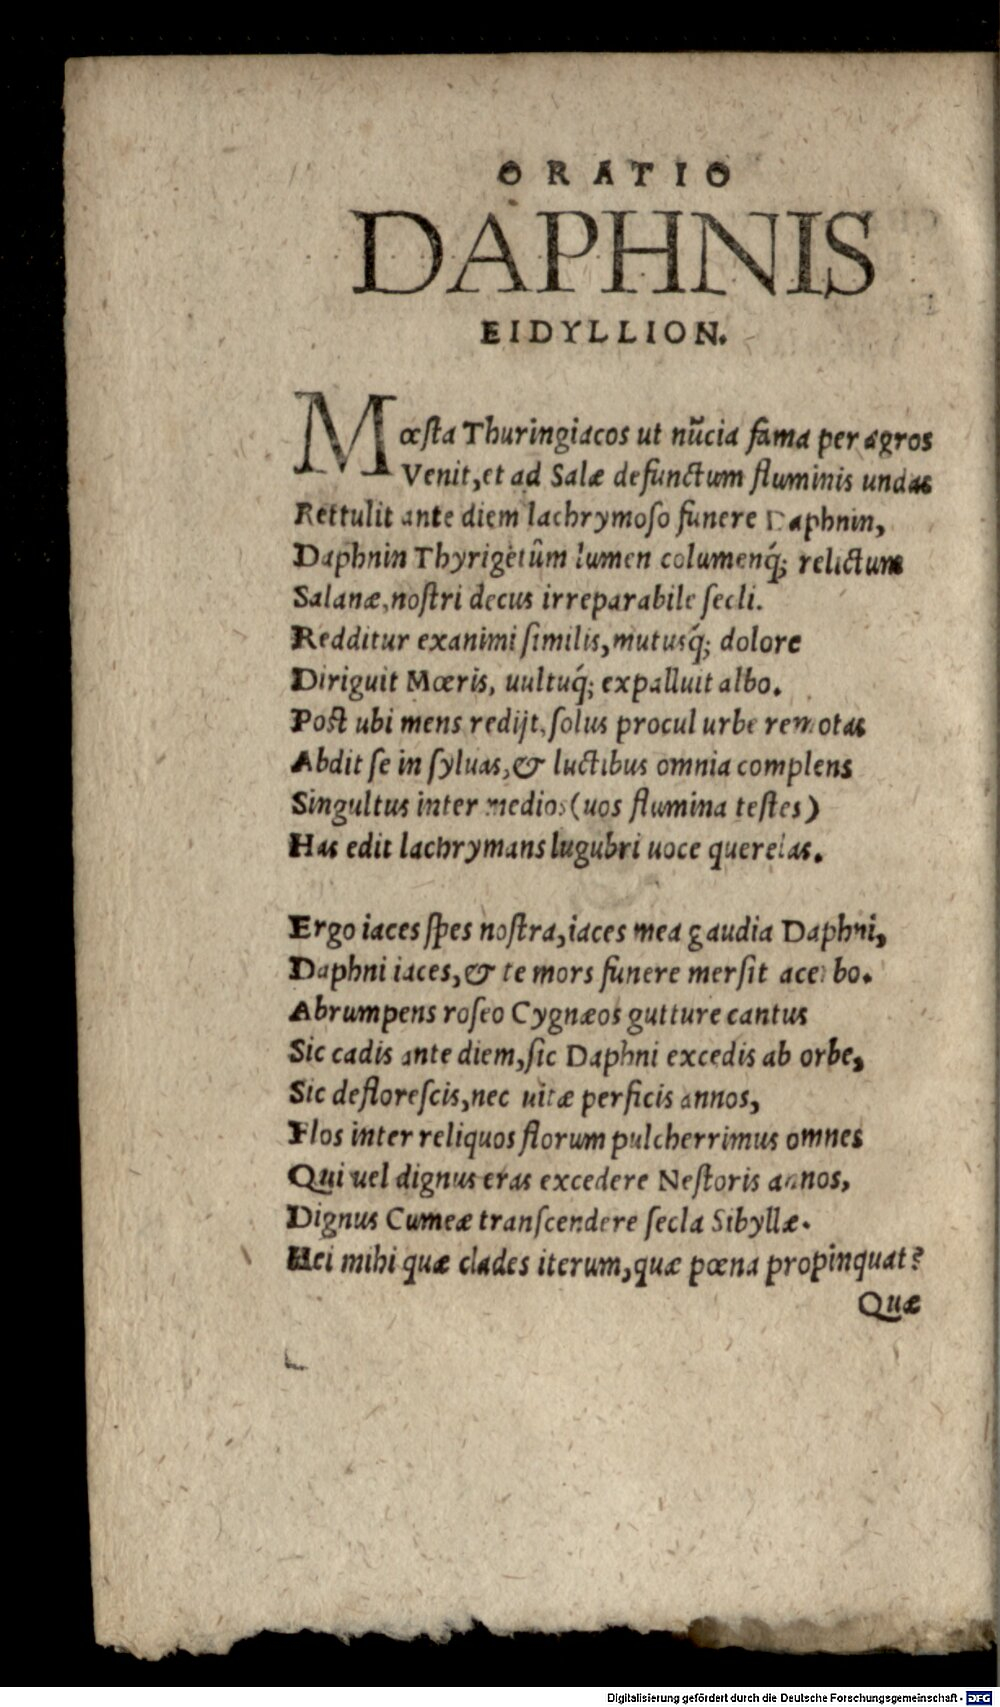 ORATIO
DAPHNIS
EIDYLLION.
Mœſta Thuringiacos ut nũcia fama per agros
Venit, et ad Salæ defunctum fluminis undas
Rettulit ante diem lachrymoſo funere Daphnin,
Daphnin Thyrigetûm lumen columenq́; relictum
Salanæ, noſtri decus irreparabile ſecli.
Redditur exanimi ſimilis, mutusq́; dolore
Diriguit Mœris, uultuq́; expalluit albo.
Poſt ubi mens redijt, ſolus procul urbe remotas
Abdit ſe in ſyluas, & luctibus omnia complens
Singultus inter medios (uos flumina teſtes)
Has edit lachrymans lugubri uoce querelas.
Ergo iaces ſpes noſtra, iaces mea gaudia Daphni,
Daphni iaces, & te mors funere merſit acerbo.
Abrumpens roſeo Cygnæos gutture cantus
Sic cadis ante diem, ſic Daphni excedis ab orbe,
Sic defloreſcis, nec uitæ perficis annos,
Flos inter reliquos florum pulcherrimus omnes
Qui uel dignus eras excedere Neſtoris annos,
Dignus Cumeæ tranſcendere ſecla Sibyllæ.
Hei mihi quæ clades iterum, quæ pœna propinquat?
Quæ
Digitalisierung gefördert durch die Deutsche Forschungsgemeinschaft - DFG